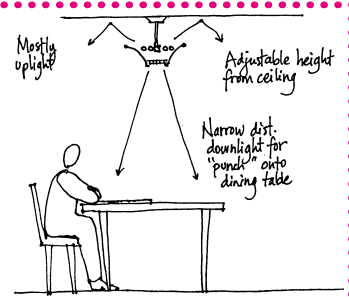 Mostly
uplight
Adjustable height
from ceiling
Narrow dist.
downlight for
"punch" onto
dining table